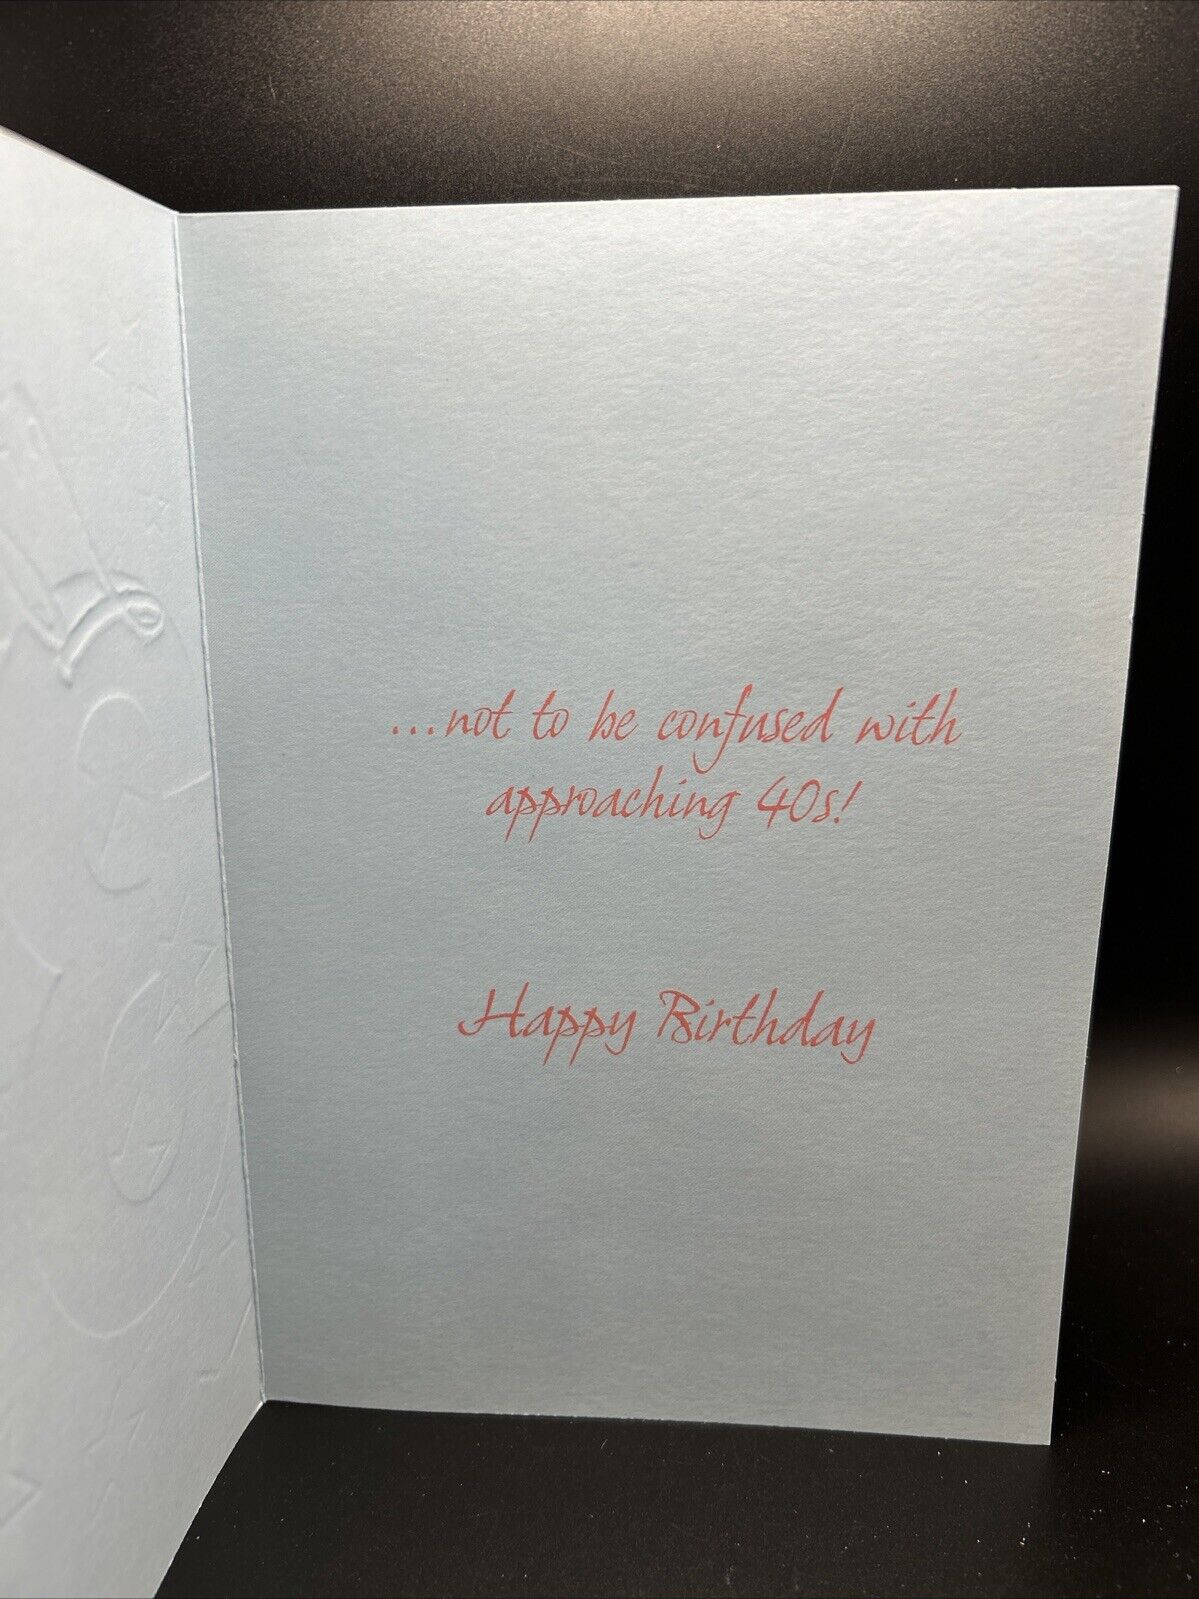 ...not to be confused with
approaching 40s!
Happy Birthday